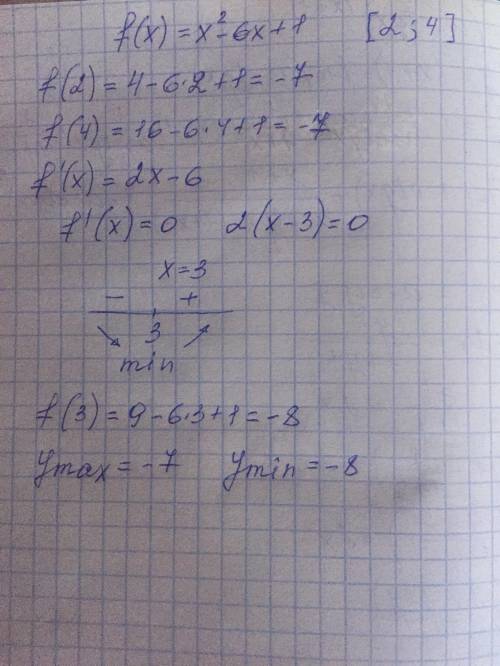 f(x) = x² - 6x + 1 [2; 4]
f(2) = 4 - 6·2 + 1 = -7
f(4) = 16 - 6·4 + 1 = -7
f'(x) = 2x - 6
f'(x) = 0 2(x - 3) = 0
x = 3
- +
3
min
f(3) = 9 - 6·3 + 1 = -8
ymax = -7 ymin = -8